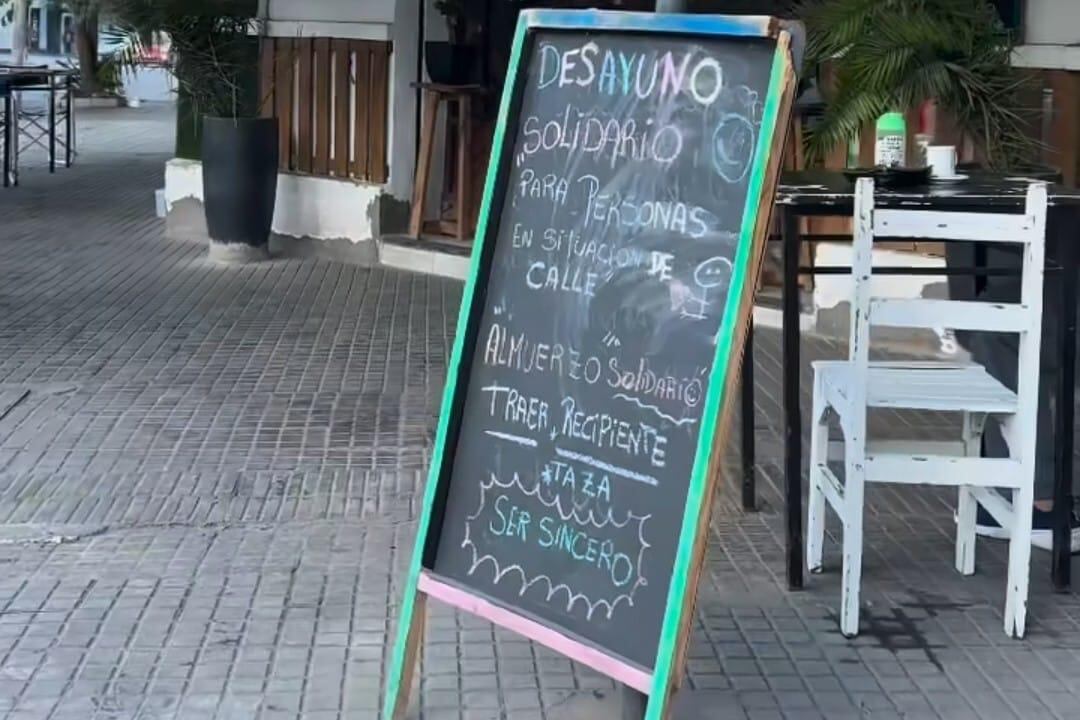 DESAYUNO
"SOLIDARIO
PARA PERSONAS
EN SITUACION DE
CALLE"
"ALMUERZO SOLIDARIO"
TRAER, RECIPIENTE
*TAZA
SER SINCERO